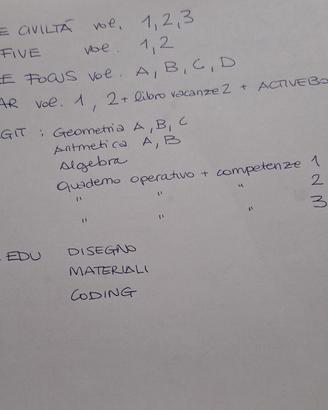 E CIVILTÀ vol. 1,2,3
FIVE vol. 1,2
E FOCUS vol. A, B, C, D
AR vol. 1, 2 + libro vacanze 2 + ACTIVEBO
GIT : Geometria A, B, C
Aritmetica A, B
Algebra
Quaderno operativo + competenze 1
" " " 2
" " " 3
EDU DISEGNO
MATERIALI
CODING